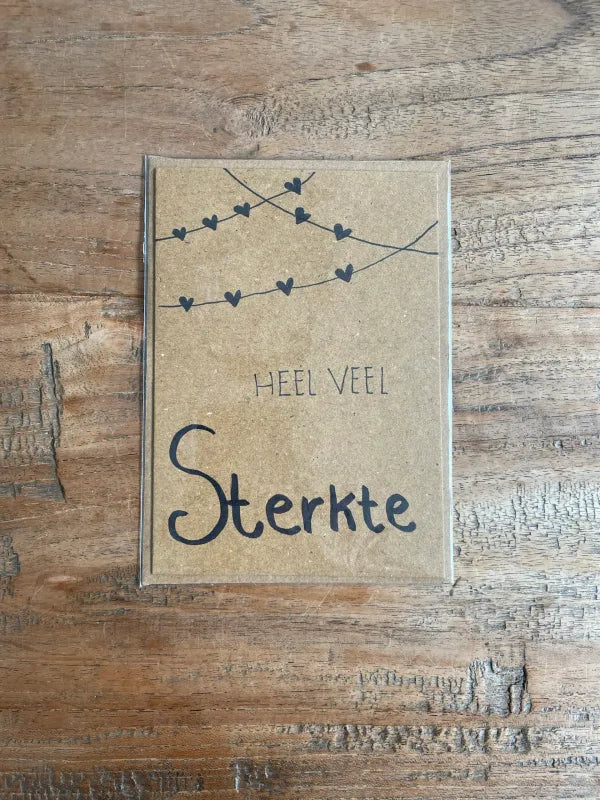 HEEL VEEL
Sterkte